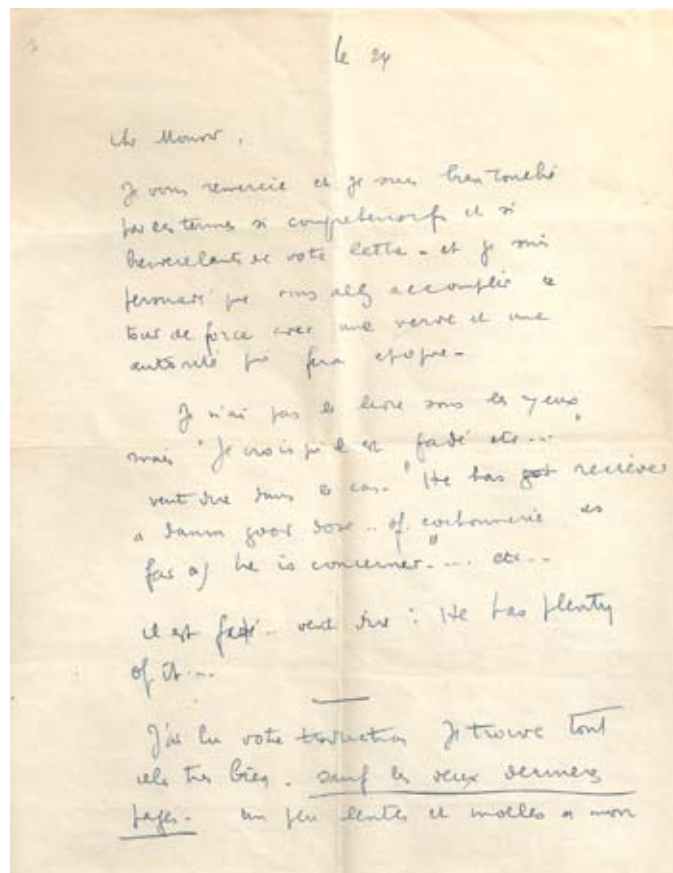 le 24
Cher Monsieur,
Je vous remercie et je suis bien touché
par les termes si compréhensifs et si
bienveillants de votre lettre - et je suis
persuadé que vous allez accomplir ce
tour de force avec une verve et une
autorité qui fera époque -
Je n'ai pas le livre sous les yeux
mais "Je crois qu'il est fadé etc..."
veut dire dans ce cas. "He has got received
a damn good dose .. of cochonnerie as
far as he is concerned" .... etc...
il est fadé.. veut dire : He has plenty
of it...
J'ai lu votre traduction Je trouve tout
cela très bien. sauf les deux dernières
pages - un peu lentes et molles à mon